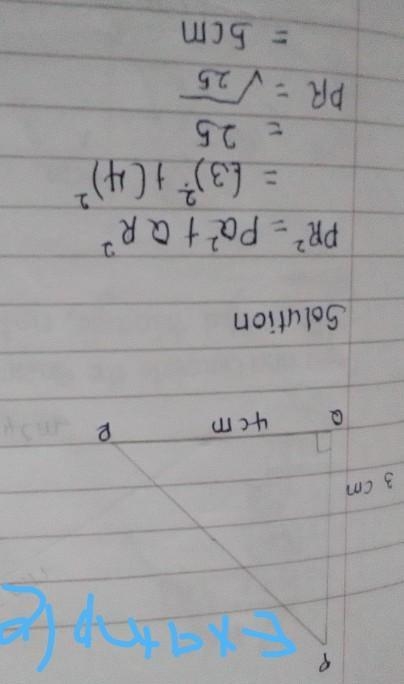 P
3 cm
Q 4cm R
Solution
PR² = PQ² + QR²
= (3)² + (4)²
= 25
PR = √25
= 5cm